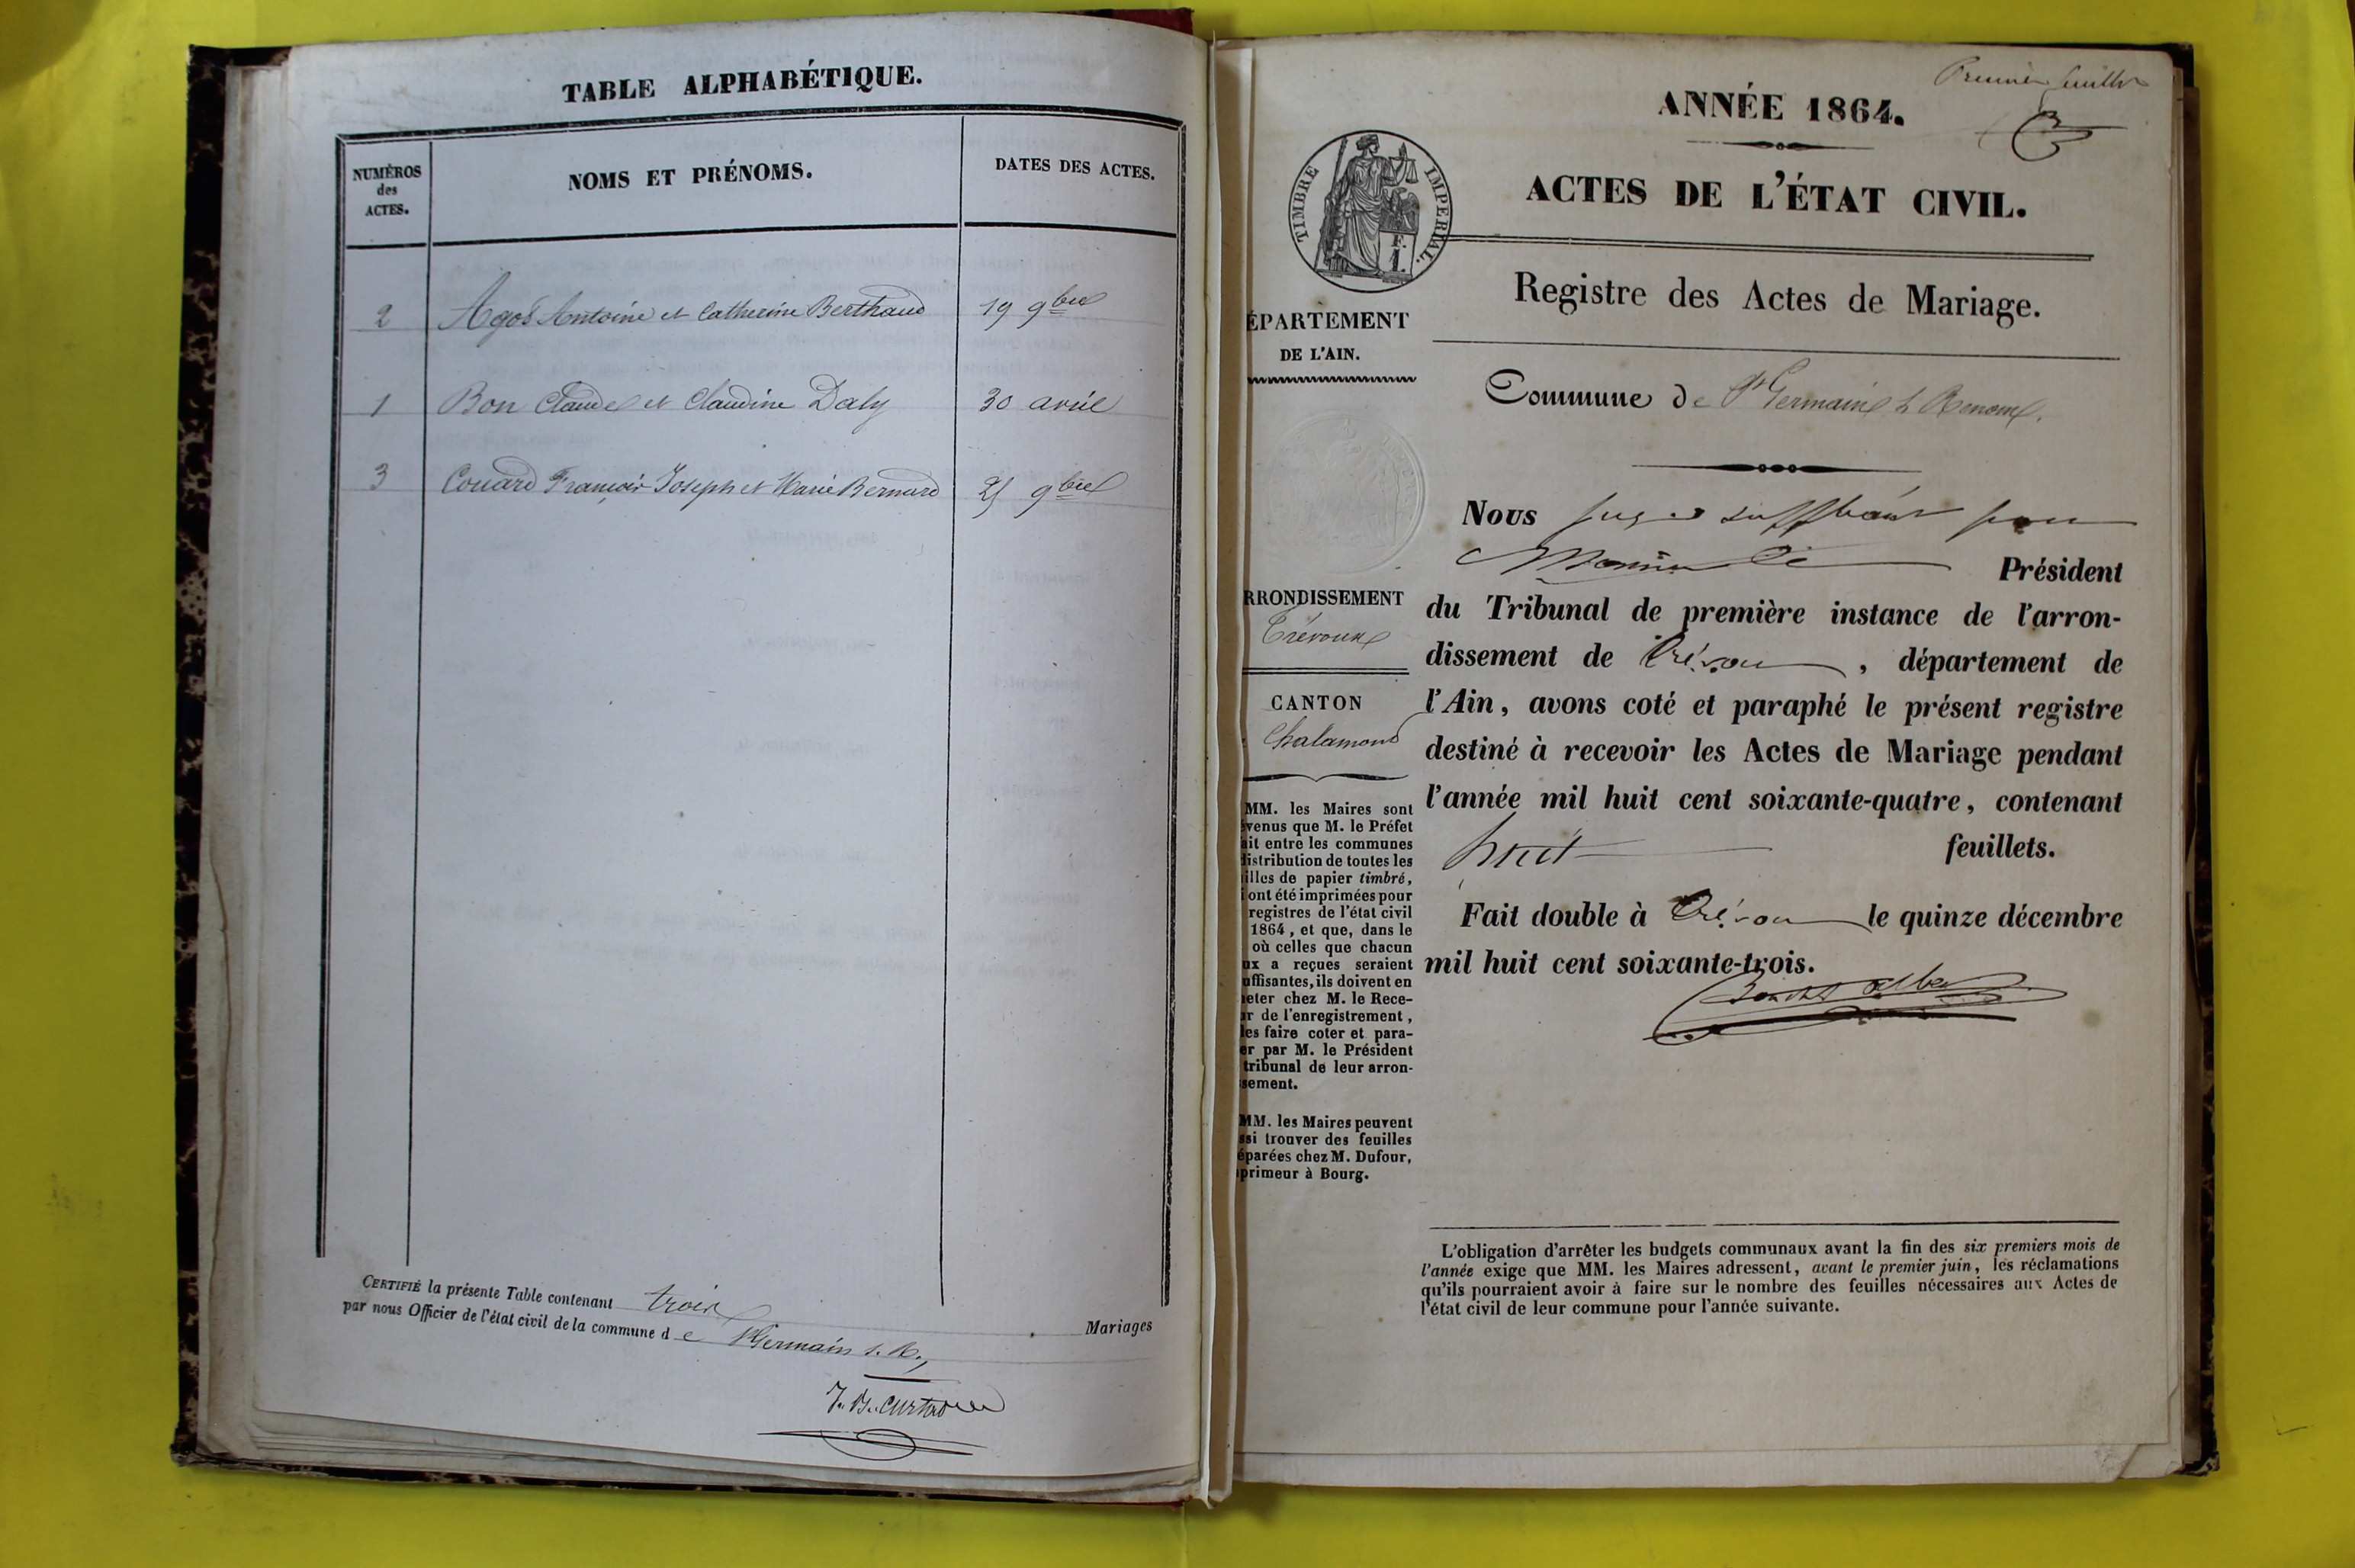 TABLE ALPHABÉTIQUE.
NUMÉROS
des
ACTES.
NOMS ET PRÉNOMS.
DATES DES ACTES.
2 Agos Antoine et Catherine Berthaud 19 9bre
1 Bon Claude et Claudine Daly 30 avril
3 Couard François Joseph et Marie Bernard 25 9bre
CERTIFIÉ la présente Table contenant trois Mariages
par nous Officier de l'état civil de la commune de St Germain s. R.,
Premier feuillet
ANNÉE 1864.
ACTES DE L'ÉTAT CIVIL.
TIMBRE IMPERIAL.
F.
1.
Registre des Actes de Mariage.
ÉPARTEMENT
DE L'AIN.
Commune de St Germain s Renom.
Nous juge suppléant pour
Président
RRONDISSEMENT
Trévoux
du Tribunal de première instance de l'arron-
dissement de Trévoux, département de
CANTON
Chalamont
l'Ain, avons coté et paraphé le présent registre
destiné à recevoir les Actes de Mariage pendant
l'année mil huit cent soixante-quatre, contenant
huit feuillets.
Fait double à Trévoux le quinze décembre
mil huit cent soixante-trois.
MM. les Maires sont
venus que M. le Préfet
ait entre les communes
distribution de toutes les
illes de papier timbré,
i ont été imprimées pour
registres de l'état civil
1864, et que, dans le
où celles que chacun
ux a reçues seraient
uffisantes, ils doivent en
eter chez M. le Rece-
ur de l'enregistrement,
les faire coter et para-
er par M. le Président
tribunal de leur arron-
sement.
MM. les Maires peuvent
ssi trouver des feuilles
éparées chez M. Dufour,
primeur à Bourg.
L'obligation d'arrêter les budgets communaux avant la fin des six premiers mois de
l'année exige que MM. les Maires adressent, avant le premier juin, les réclamations
qu'ils pourraient avoir à faire sur le nombre des feuilles nécessaires aux Actes de
l'état civil de leur commune pour l'année suivante.